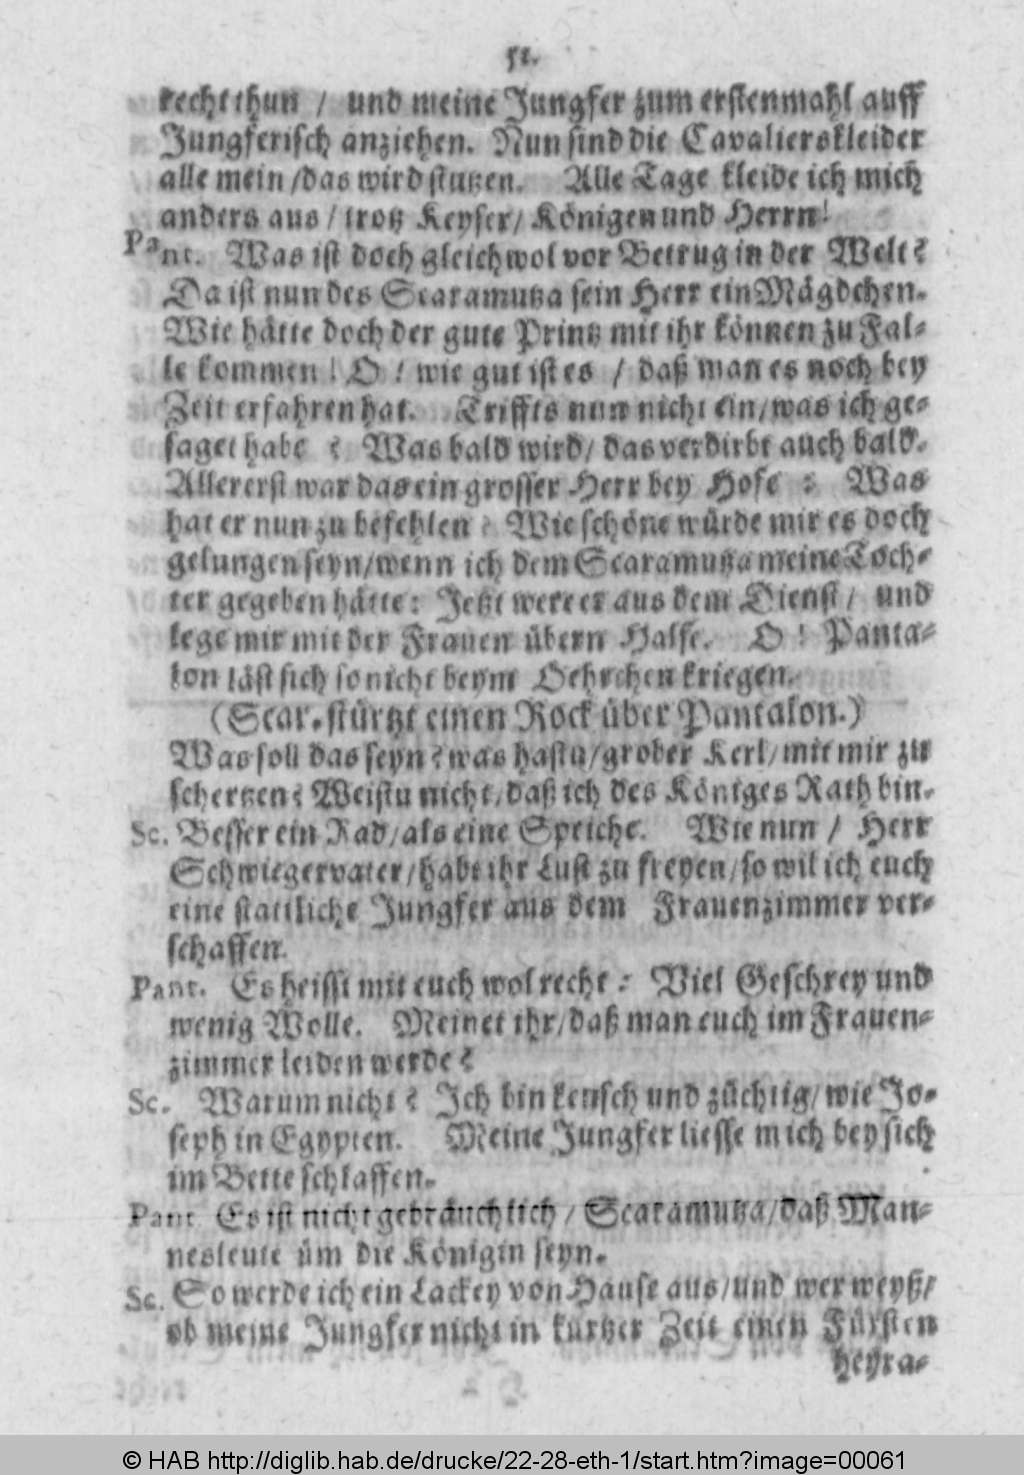 51.
recht thun / und meine Jungfer zum erstenmahl auff
Jungferisch anziehen. Nun sind die Cavalierskleider
alle mein / das wird stutzen. Alle Tage kleide ich mich
anders aus / trotz Keyser / Königen und Herrn!
Pant. Was ist doch gleichwol vor Betrug in der Welt?
Da ist nun des Scaramutza sein Herr ein Mägdchen.
Wie hätte doch der gute Printz mit ihr können zu Fal-
le kommen! O! wie gut ist es / daß man es noch bey
Zeit erfahren hat. Triffts nun nicht ein / was ich ge-
saget habe? Was bald wird / das verdirbt auch bald.
Allererst war das ein grosser Herr bey Hofe: Was
hat er nun zu befehlen? Wie schöne würde mir es doch
gelungen seyn / wenn ich dem Scaramutza meine Toch-
ter gegeben hätte: Jetzt were er aus dem Dienst / und
lege mir mit der Frauen übern Halse. O! Panta-
lon läst sich so nicht beym Oehrchen kriegen.
(Scar. stürtzt einen Rock über Pantalon.)
Was soll das seyn? was hastu / grober Kerl / mit mir zu
schertzen? Weistu nicht / daß ich des Königes Rath bin.
Sc. Besser ein Rad / als eine Speiche. Wie nun / Herr
Schwiegervater / habt ihr Lust zu freyen / so wil ich euch
eine stattliche Jungfer aus dem Frauenzimmer ver-
schaffen.
Pant. Es heisst mit euch wol recht: Viel Geschrey und
wenig Wolle. Meinet ihr / daß man euch im Frauen-
zimmer leiden werde?
Sc. Warum nicht? Ich bin keusch und züchtig / wie Jo-
seph in Egypten. Meine Jungfer liesse mich bey sich
im Bette schlaffen.
Pant Es ist nicht gebräuchlich / Scaramutza / daß Man-
nesleute üm die Königin seyn.
Sc. So werde ich ein Lackey von Hause aus / und wer weyß /
ob meine Jungfer nicht in kurtzer Zeit einen Fürsten
heyra-
© HAB http://diglib.hab.de/drucke/22-28-eth-1/start.htm?image=00061